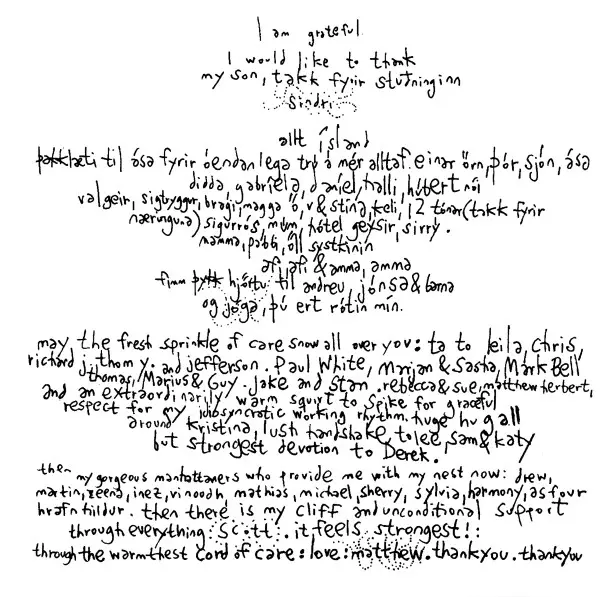 I am grateful
I would like to thank
my son, takk fyrir stuðninginn
Sindri
allt ísland
þakklæti til ása fyrir óendanlega trú á mér alltaf. einar örn, þór, sjón, ása
didda, gabríela, daníel, halli, húbert nói
valgeir, sigtryggur, bragi, magga ö, v & stína, keli, 12 tónar (takk fyrir
næringuna) sigurrós, múm, hótel geysir, sirry.
mamma, pabbi, öll systkinin
afi, afi & amma, amma
fimm hjörtu til andreu, jónsa & barna
og jóga, þú ert rótin mín.
may, the fresh sprinkle of care snow all over you: ta to leila, chris,
richard j, thom y. and jefferson. Paul White, Marjan & Sasha, Mark Bell
thomas, Marius & Guy. Jake and Stan. rebecca & sue, matthew herbert,
and an extraordinarily warm squirt to Spike for graceful
respect for my idiosyncratic working rhythm. huge hug all
around kristina, lush handshake to lee, sam & katy
but strongest devotion to Derek.
then my gorgeous manhattaners who provide me with my nest now: drew,
martin, zeena, inez, vinoodh, mathias, michael, sherry, sylvia, harmony, as four
hrafnhildur. then there is my cliff and unconditional support
through everything: Scott. it feels strongest!:
through the warmthest cord of care: love: matthew. thankyou. thankyou